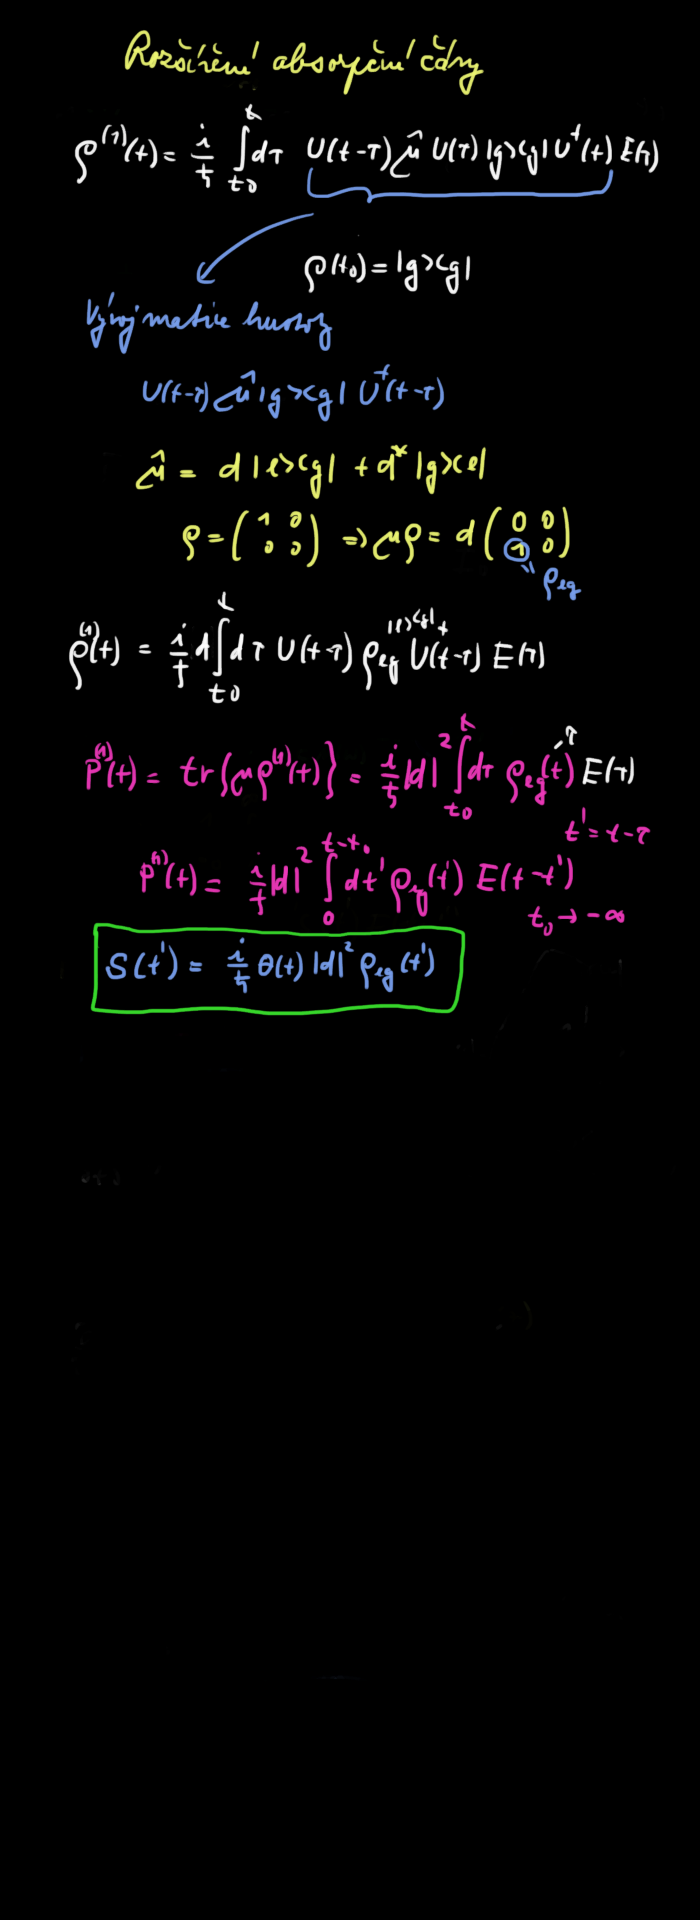 Rozšíření absorpční čáry
ρ⁽¹⁾(t) = i/ħ ∫_{t0}^{t} dτ U(t-τ) μ̂ U(τ) |g><g| U⁺(t) E(τ)
ρ(t₀) = |g><g|
Vývoj matice hustoty
U(t-τ) μ̂ |g><g| U⁺(t-τ)
μ̂ = d |e><g| + d* |g><e|
ρ = (1 0; 0 0) => μρ = d (0 0; 1 0)
" ρeg
|e><g|
ρ⁽¹⁾(t) = i/ħ d ∫_{t0}^{t} dτ U(t-τ) ρeg U⁺(t-τ) E(τ)
P⁽¹⁾(t) = tr{μρ⁽¹⁾(t)} = i/ħ |d|² ∫_{t0}^{t} dτ ρeg(t-τ) E(τ)
t' = t-τ
P⁽¹⁾(t) = i/ħ |d|² ∫_{0}^{t-t₀} dt' ρeg(t') E(t-t')
t₀ → -∞
S(t') = i/ħ θ(t) |d|² ρeg(t')